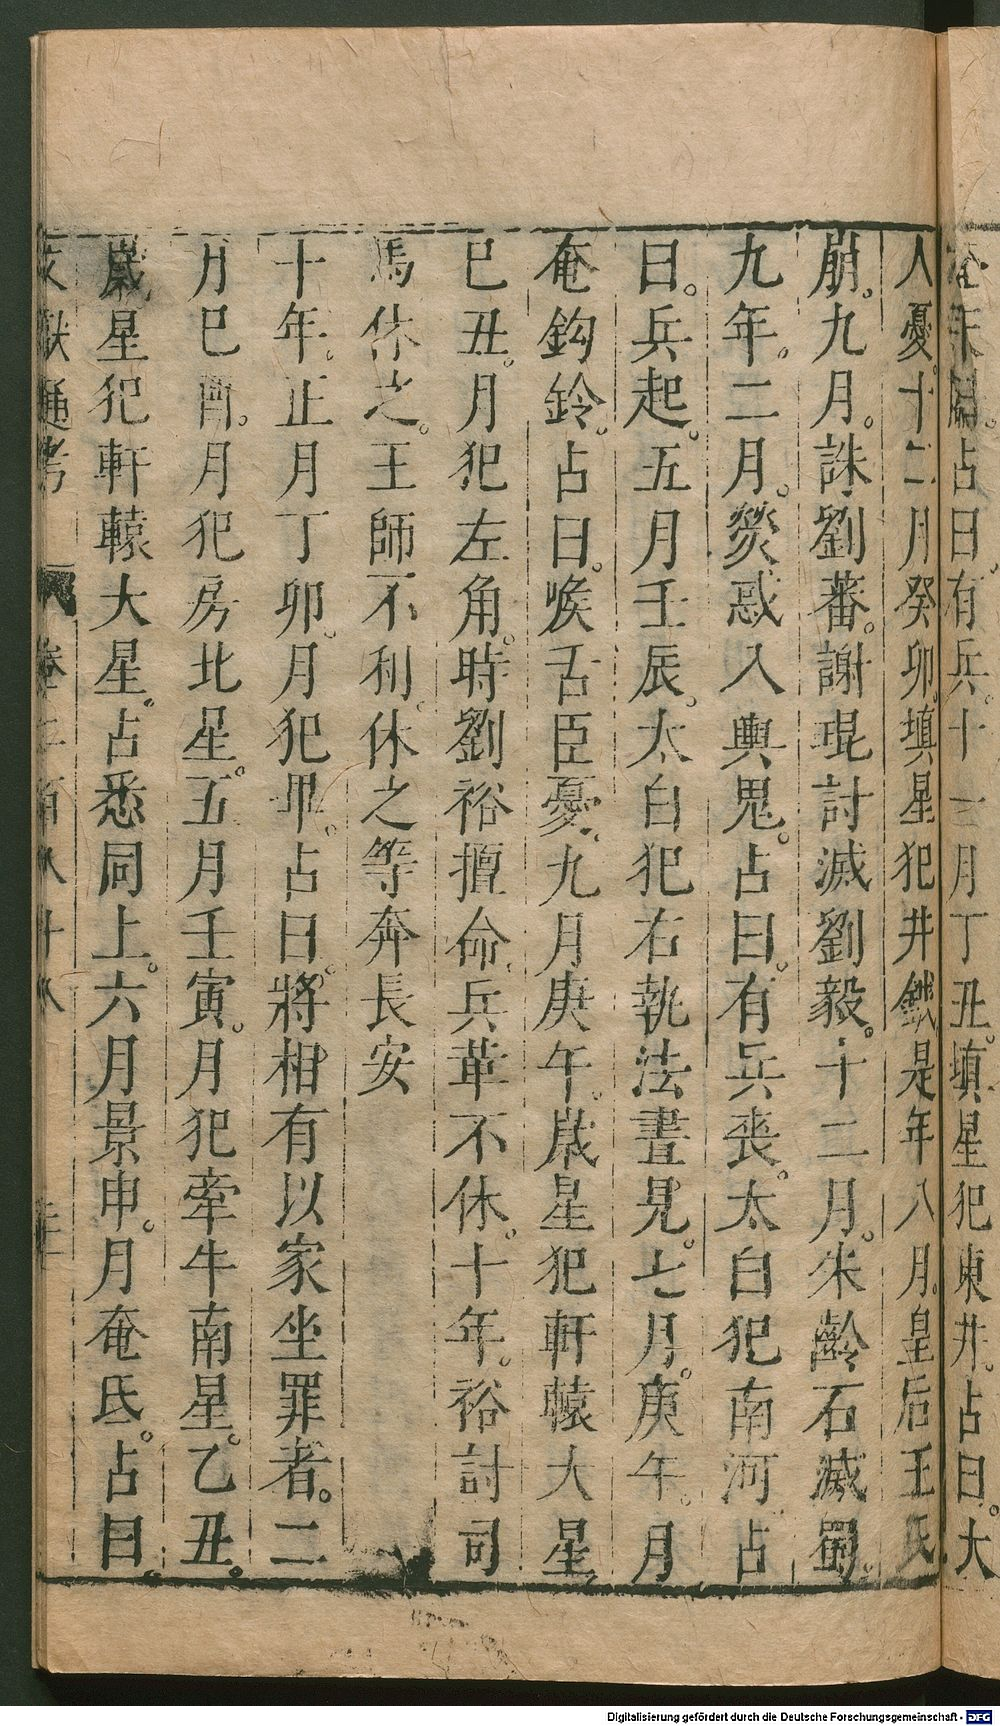 人天關占曰有兵十一月丁丑填星犯東井占曰大
人憂十二月癸卯填星犯井鉞是年八月皇后王氏
崩九月誅劉蕃謝琨討滅劉毅十二月朱齡石滅蜀
九年二月熒惑入輿鬼占曰有兵喪太白犯南河占
曰兵起五月壬辰太白犯右執法晝見七月庚午月
奄鈎鈴占曰喉舌臣憂九月庚午歲星犯軒轅大星
巳丑月犯左角時劉裕擅命兵革不休十年裕討司
馬休之王師不利休之等奔長安
十年正月丁卯月犯畢占曰將相有以家坐罪者二
月巳酉月犯房北星五月壬寅月犯牽牛南星乙丑
歲星犯軒轅大星占悉同上六月景申月奄氐占曰
文獻通考 卷二百八十八
Digitalisierung gefördert durch die Deutsche Forschungsgemeinschaft - DFG